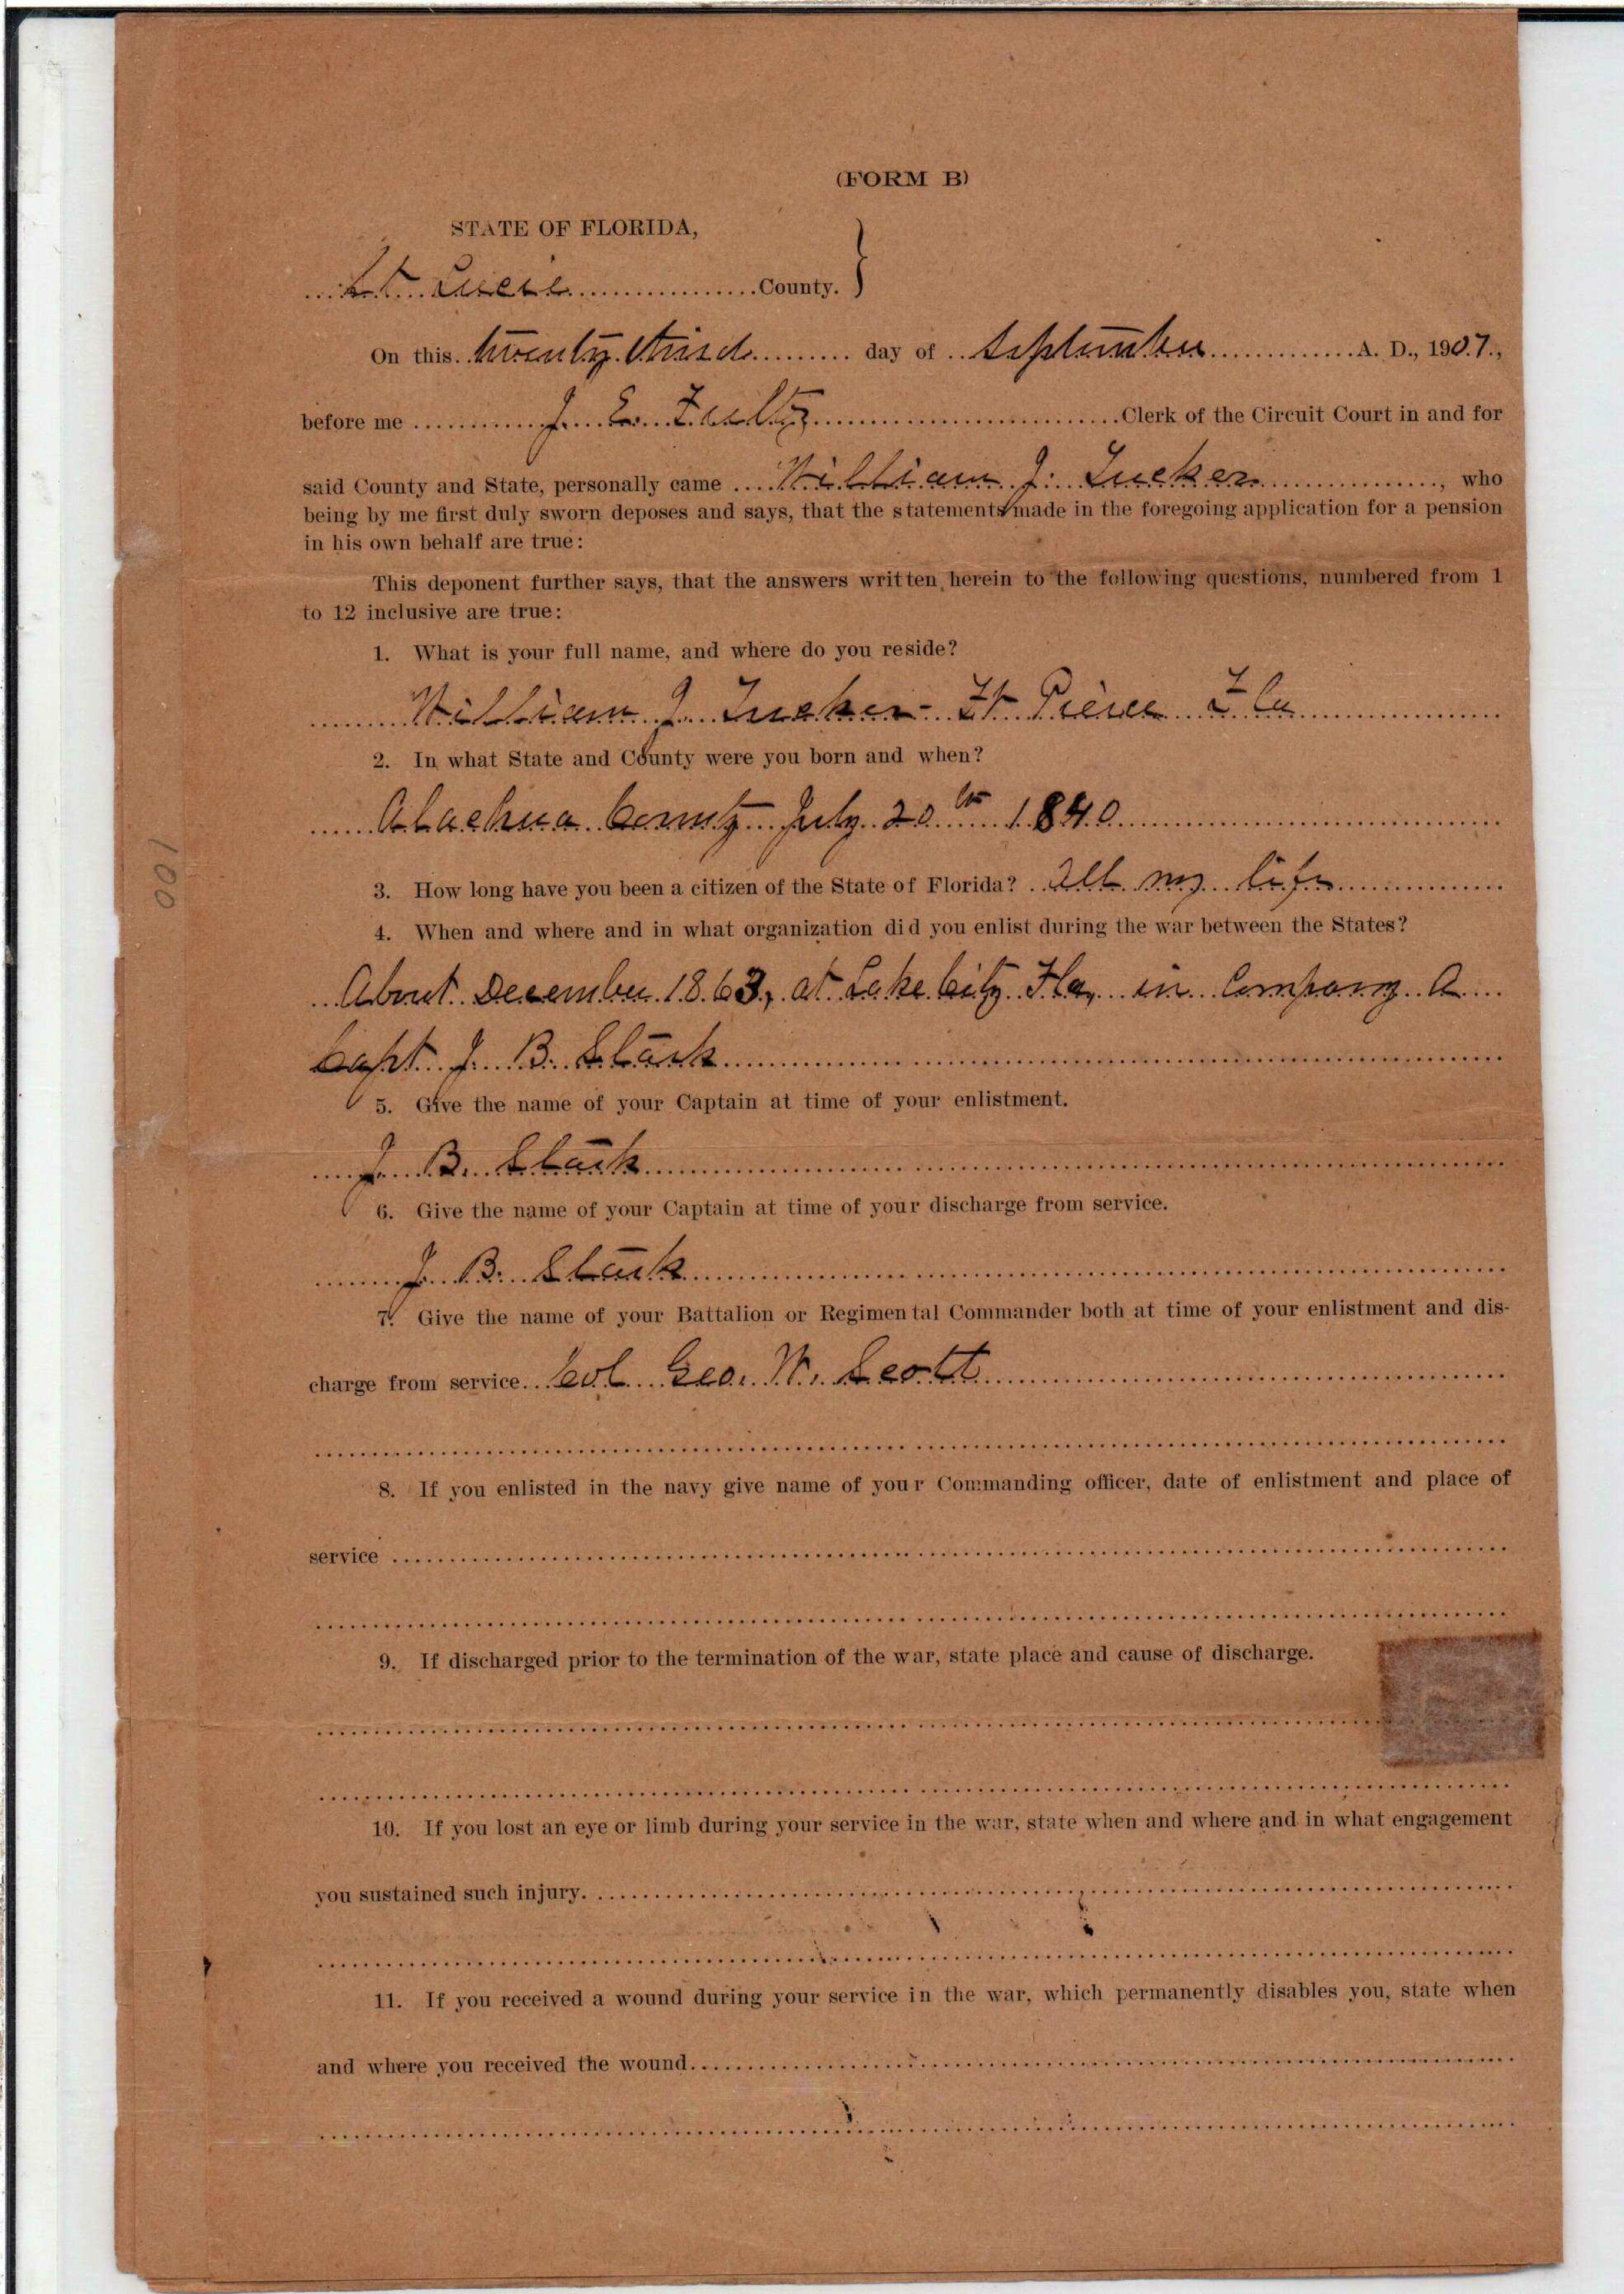 (FORM B)
STATE OF FLORIDA,
St. Lucie County.
On this twenty third day of September A. D., 1907,
before me J. E. Fultz Clerk of the Circuit Court in and for
said County and State, personally came William J. Tucker, who
being by me first duly sworn deposes and says, that the statements made in the foregoing application for a pension
in his own behalf are true:
This deponent further says, that the answers written herein to the following questions, numbered from 1
to 12 inclusive are true:
1. What is your full name, and where do you reside?
William J. Tucker - Ft Pierce Fla
2. In what State and County were you born and when?
Alachua County July 20th 1840
3. How long have you been a citizen of the State of Florida? All my life
4. When and where and in what organization did you enlist during the war between the States?
About December 1863, at Lake City Fla, in Company A
Capt. J. B. Stark
5. Give the name of your Captain at time of your enlistment.
J. B. Stark
6. Give the name of your Captain at time of your discharge from service.
J. B. Stark
7. Give the name of your Battalion or Regimental Commander both at time of your enlistment and dis-
charge from service. Col Geo. W. Scott
8. If you enlisted in the navy give name of your Commanding officer, date of enlistment and place of
service
9. If discharged prior to the termination of the war, state place and cause of discharge.
10. If you lost an eye or limb during your service in the war, state when and where and in what engagement
you sustained such injury.
11. If you received a wound during your service in the war, which permanently disables you, state when
and where you received the wound
100